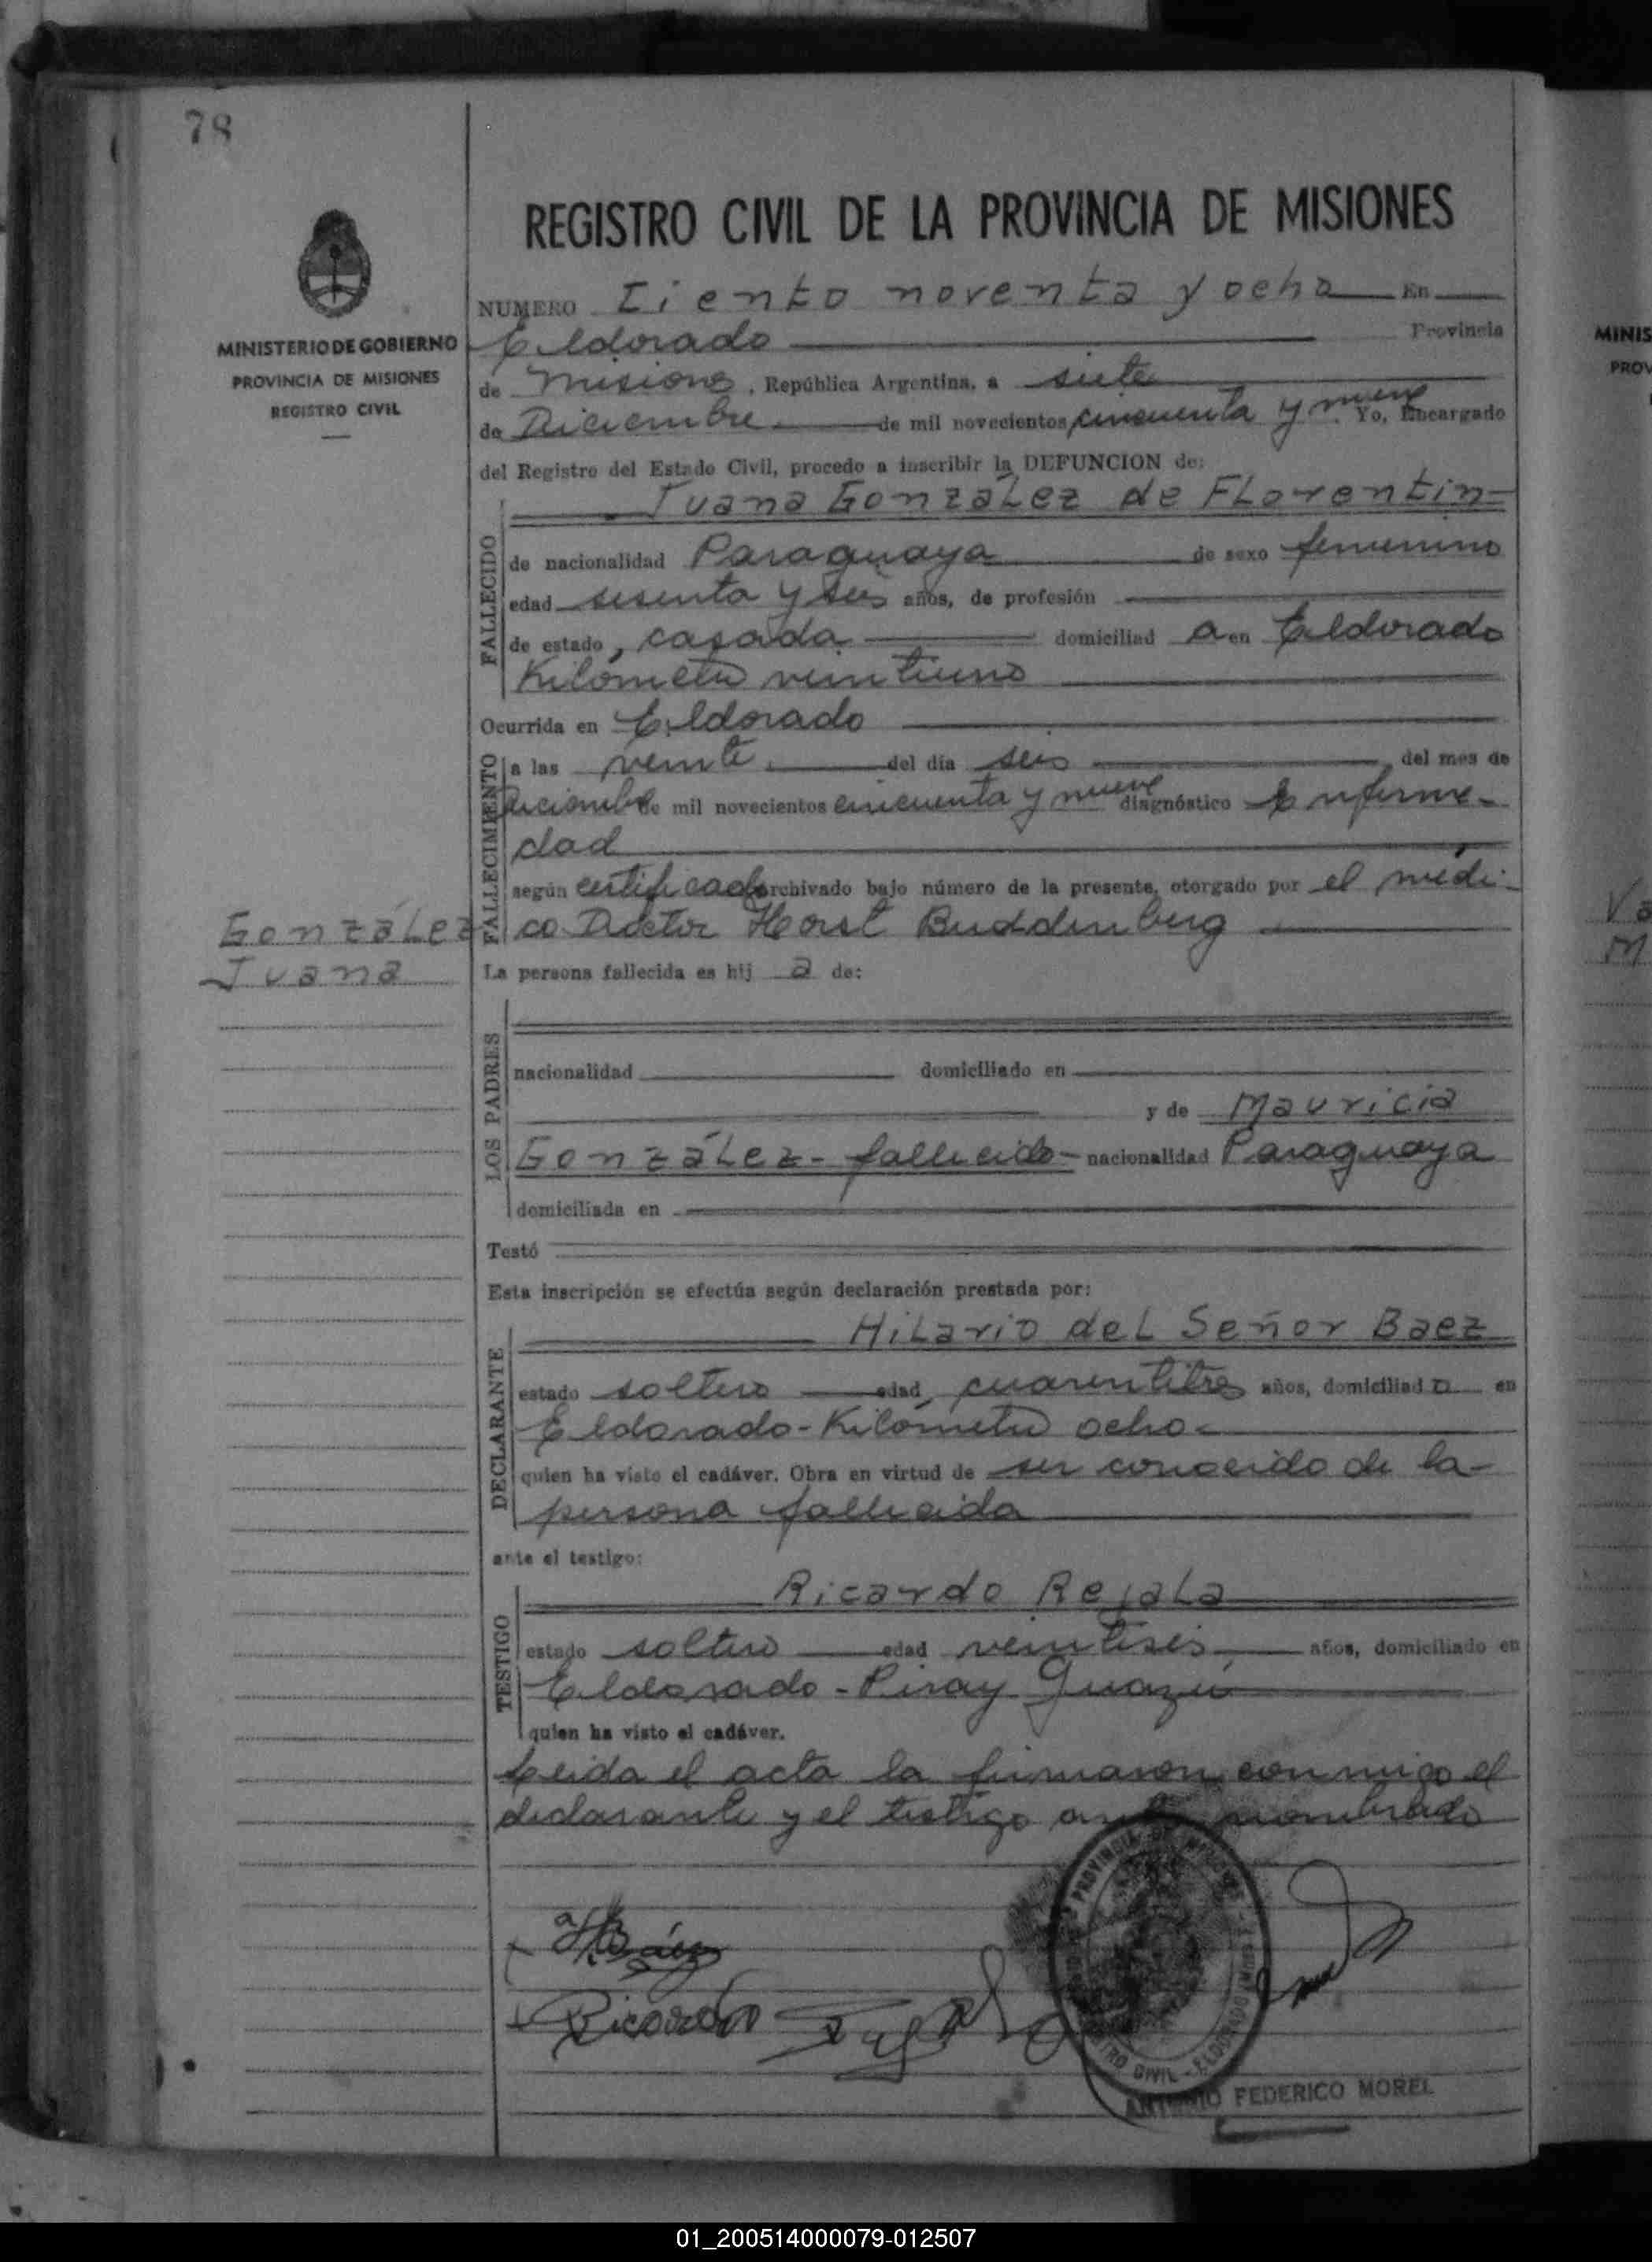 78
REGISTRO CIVIL DE LA PROVINCIA DE MISIONES
MINISTERIO DE GOBIERNO
PROVINCIA DE MISIONES
REGISTRO CIVIL
NUMERO Ciento noventa y ocho En
Eldorado Provincia
de Misiones, República Argentina, a siete
de Diciembre de mil novecientos cincuenta y nueve Yo, Encargado
del Registro del Estado Civil, procedo a inscribir la DEFUNCION de:
FALLECIDO
Juana González de FLorentin
de nacionalidad Paraguaya de sexo femenino
edad sesenta y seis años, de profesión
de estado, casada domiciliad a en Eldorado
Kilómetro veintiuno
Ocurrida en Eldorado
FALLECIMIENTO
a las veinte del día seis del mes de
Diciembre de mil novecientos cincuenta y nueve diagnóstico Enferme-
dad
según certificado archivado bajo número de la presente, otorgado por el médi-
co Doctor Horst Buddenberg
González
Juana
La persona fallecida es hij a de:
LOS PADRES
nacionalidad domiciliado en
y de Mauricia
González - fallecida - nacionalidad Paraguaya
domiciliada en
Testó
Esta inscripción se efectúa según declaración prestada por:
DECLARANTE
HiLario deL Señor Baez
estado soltero edad cuarentitres años, domiciliad o en
Eldorado - Kilómetro ocho
quien ha visto el cadáver. Obra en virtud de ser conocido de la
persona fallecida
ante el testigo:
TESTIGO
Ricardo RejaLa
estado soltero edad veintiseis años, domiciliado en
Eldorado - Piray Guazú
quien ha visto el cadáver.
Leida el acta la firmaron conmigo el
declarante y el testigo ante nombrado
H. Báez
Ricardo
PROVINCIA DE MISIONES
REGISTRO CIVIL - ELDORADO
ANTONIO FEDERICO MOREL
MINIS
PROV
Va
M
01_200514000079-012507